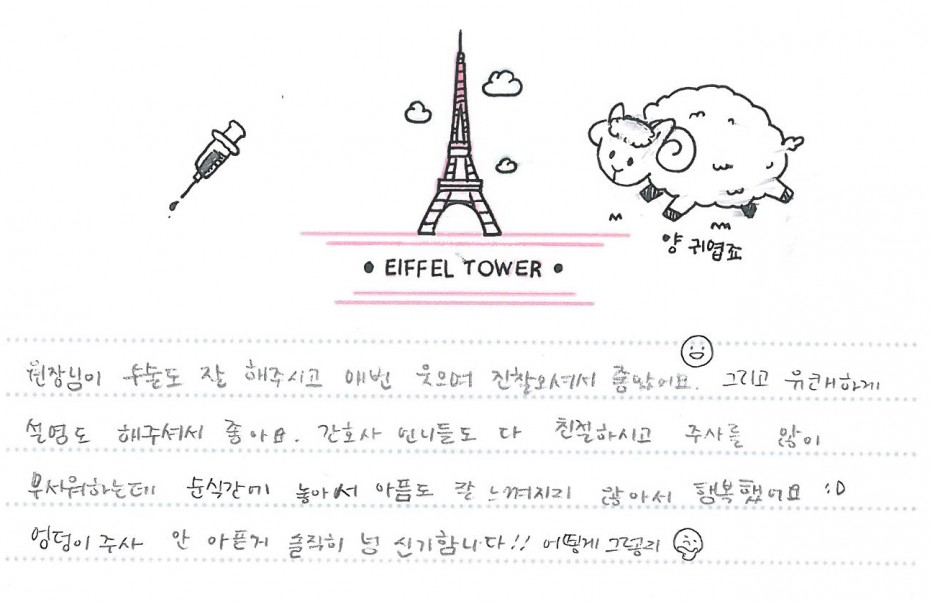 • EIFFEL TOWER •
양 귀엽죠
원장님이 수술도 잘 해주시고 매번 웃으며 진찰오셔서 좋았어요. 그리고 유쾌하게
설명도 해주셔서 좋아요. 간호사 언니들도 다 친절하시고 주사를 많이
무서워하는데 순식간에 놓아서 아픔도 잘 느껴지지 않아서 행복했어요 :D
엉덩이 주사 안 아픈게 솔직히 넘 신기합니다!! 어떻게 그렇지